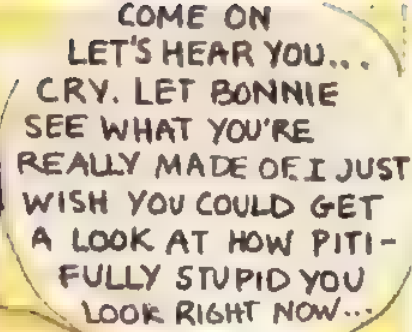 COME ON
LET'S HEAR YOU...
CRY. LET BONNIE
SEE WHAT YOU'RE
REALLY MADE OF. I JUST
WISH YOU COULD GET
A LOOK AT HOW PITI-
FULLY STUPID YOU
LOOK RIGHT NOW...